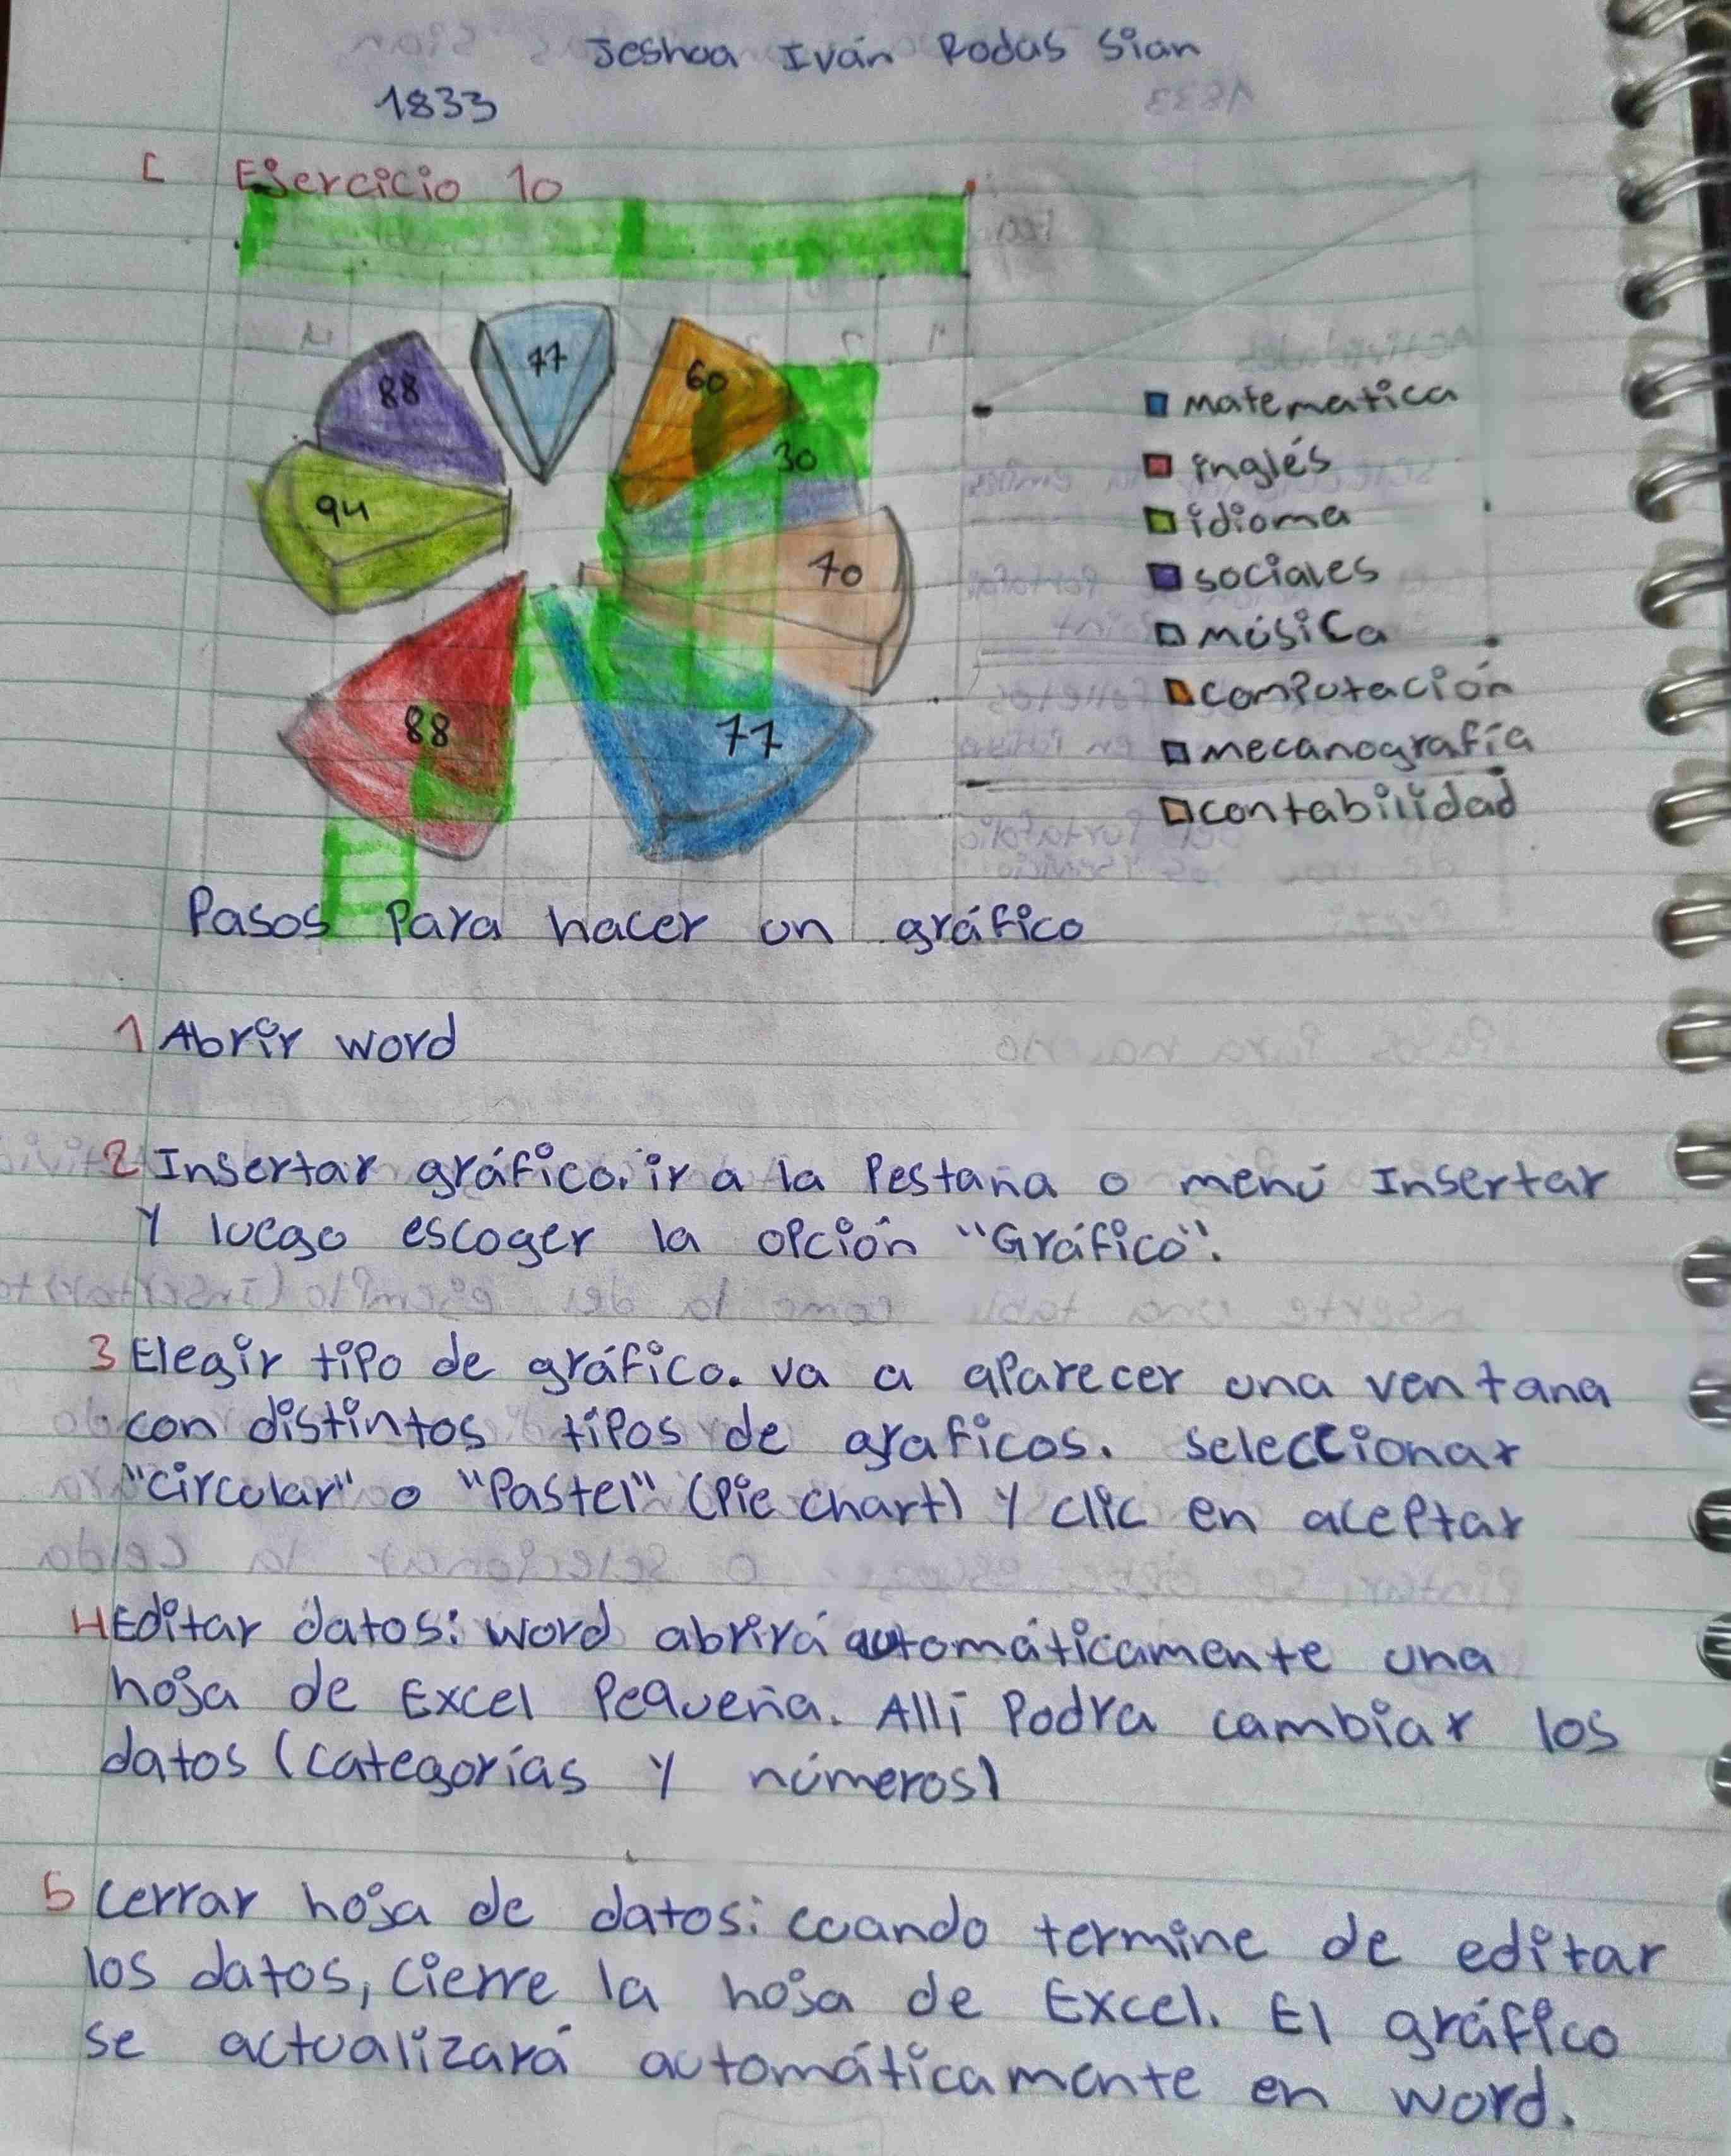 Jeshua Iván Rodas Sian
1833
Ejercicio 10
77
60
88
30
94
70
88
77
matematica
inglés
idioma
sociales
música
computación
mecanografía
contabilidad
Pasos Para hacer un gráfico
1 Abrir word
2 Insertar gráfico. ir a la Pestaña o menú Insertar
Y luego escoger la opción "Gráfico".
3 Elegir tipo de gráfico. va a aparecer una ventana
con distintos tipos de graficos. seleccionar
"circular" o "Pastel" (Pie chart) Y clic en aceptar
4 Editar datos: word abrirá automáticamente una
hoja de Excel Pequeña. Allí Podra cambiar los
datos (categorías Y números)
5 cerrar hoja de datos: cuando termine de editar
los datos, cierre la hoja de Excel. El gráfico
se actualizará automáticamente en word.